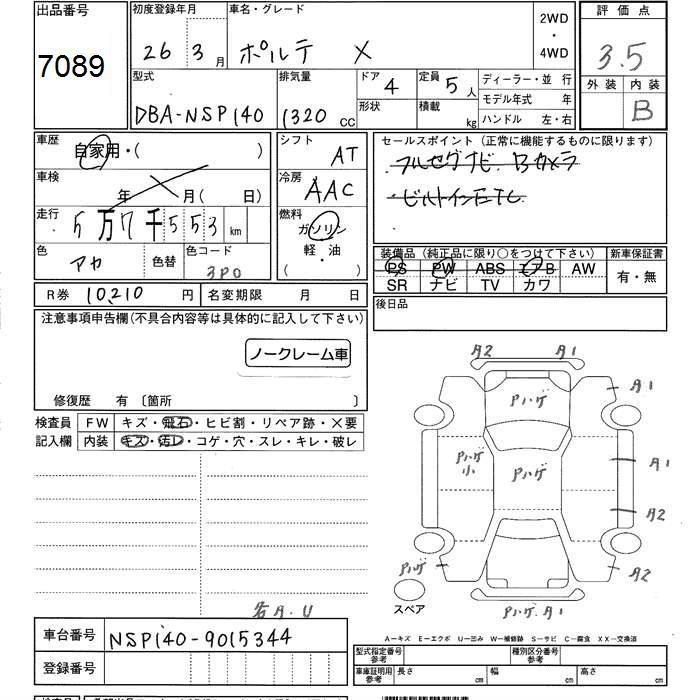 出品番号 初度登録年月 車名・グレード 2WD・4WD 評価点
7089 26年 3月 ポルテ X 3.5
外装 内装
B
型式 排気量 ドア 4 定員 5人 ディーラー・並行
形状 積載 kg モデル年式 年
DBA-NSP140 1320 CC ハンドル 左・右
車歴 シフト セールスポイント (正常に機能するものに限ります)
自家用・( ) AT フルセグナビ Bカメラ
車検 冷房 ・ビルトインETC
年 月( 日) AAC ・
走行 燃料
5万7千553km ガソリン
色 色替 色コード 軽・油 装備品 (純正品に限り○をつけて下さい) 新車保証書
アカ 3P0 ( ) PS PW ABS エアB AW 有・無
SR ナビ TV カワ
R券 10,210 円 名変期限 月 日 後日品
注意事項申告欄(不具合内容等は具体的に記入して下さい)
ノークレーム車
修復歴 有 〔箇所 〕
検査員 FW キズ・飛石・ヒビ割・リペア跡・×要
記入欄 内装 キズ・汚レ・コゲ・穴・スレ・キレ・破レ
A2 A1
Pハゲ A1
Pハゲ小 Pハゲ A1
A2
Pハゲ A2
スペア Pハゲ.A1
A.U
A-キズ E-エクボ U-凹み W-補修跡 S-サビ C-腐食 XX-交換済
車台番号 NSP140-9015344
型式指定番号 参考 種別区分番号 参考
登録番号 車庫証明用 参考 長さ cm 幅 cm 高さ cm